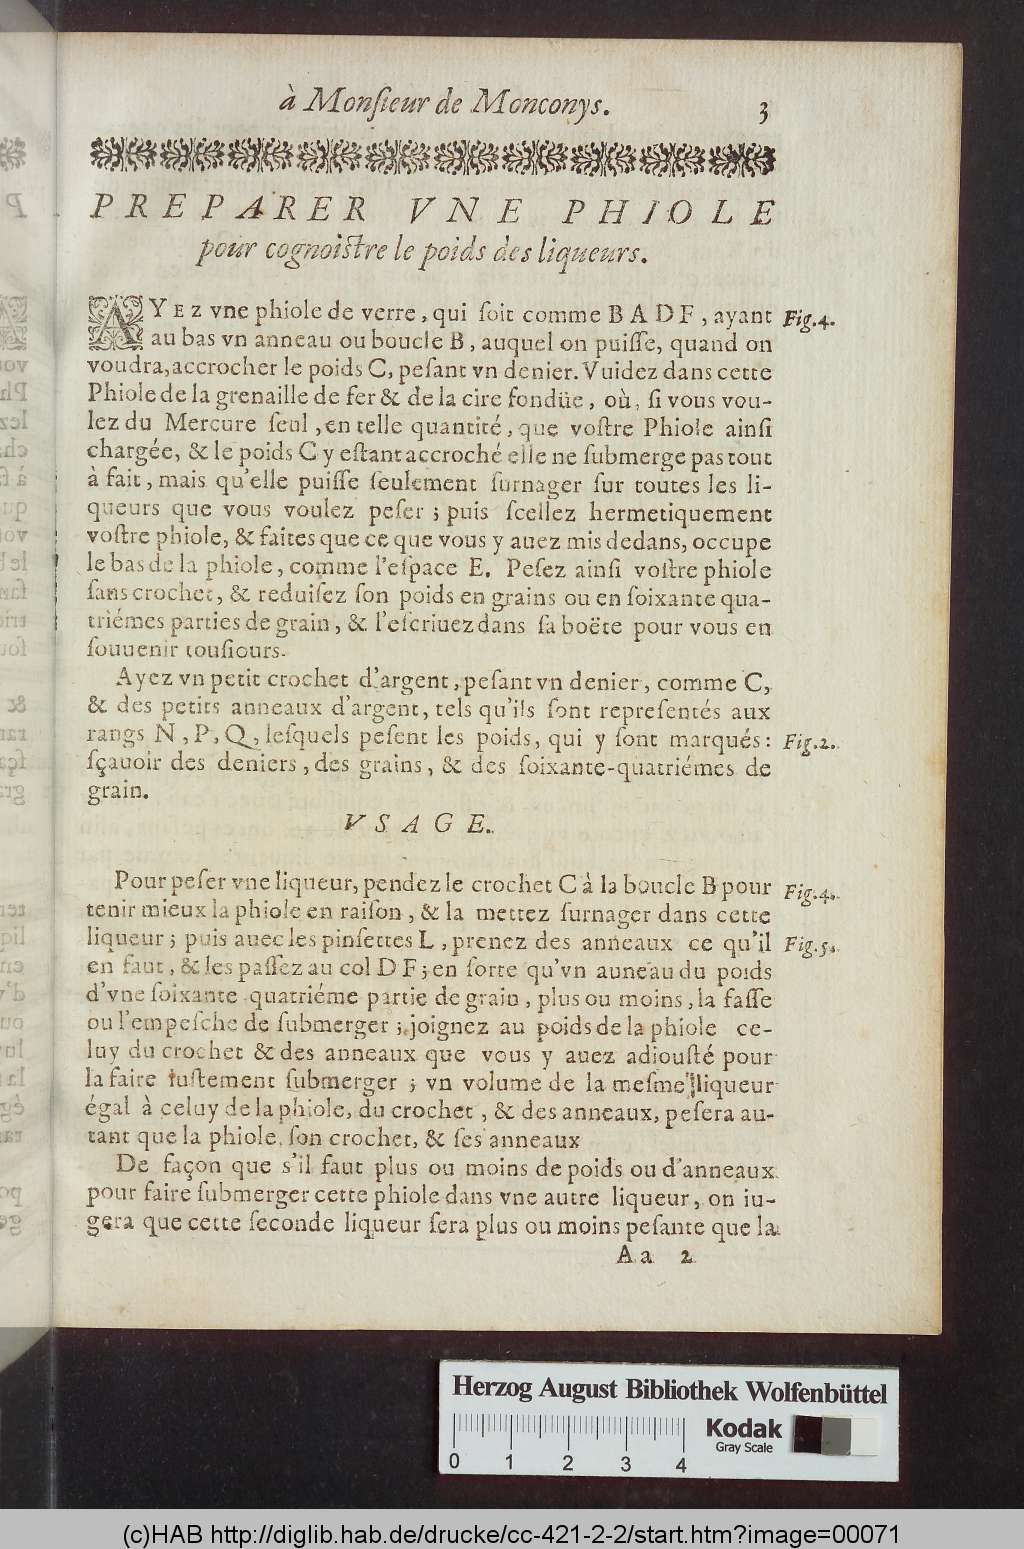 à Monſieur de Monconys. 3
PREPARER VNE PHIOLE
pour cognoiſtre le poids des liqueurs.
AYEZ vne phiole de verre, qui ſoit comme B A D F, ayant Fig.4.
au bas vn anneau ou boucle B, auquel on puiſſe, quand on
voudra, accrocher le poids C, peſant vn denier. Vuidez dans cette
Phiole de la grenaille de fer & de la cire fondüe, où, ſi vous vou-
lez du Mercure ſeul, en telle quantité, que voſtre Phiole ainſi
chargée, & le poids C y eſtant accroché elle ne ſubmerge pas tout
à fait, mais qu'elle puiſſe ſeulement ſurnager ſur toutes les li-
queurs que vous voulez peſer; puis ſcellez hermetiquement
voſtre phiole, & faites que ce que vous y auez mis dedans, occupe
le bas de la phiole, comme l'eſpace E. Peſez ainſi voſtre phiole
ſans crochet, & reduiſez ſon poids en grains ou en ſoixante qua-
triémes parties de grain, & l'eſcriuez dans ſa boëte pour vous en
ſouuenir touſiours.
Ayez vn petit crochet d'argent, peſant vn denier, comme C,
& des petits anneaux d'argent, tels qu'ils ſont repreſentés aux
rangs N, P, Q, leſquels peſent les poids, qui y ſont marqués: Fig.2.
ſçauoir des deniers, des grains, & des ſoixante-quatriémes de
grain.
VSAGE.
Pour peſer vne liqueur, pendez le crochet C à la boucle B pour Fig.4.
tenir mieux la phiole en raiſon, & la mettez ſurnager dans cette
liqueur; puis auec les pinſettes L, prenez des anneaux ce qu'il Fig.5.
en faut, & les paſſez au col D F; en ſorte qu'vn auneau du poids
d'vne ſoixante quatriéme partie de grain, plus ou moins, la faſſe
ou l'empeſche de ſubmerger; joignez au poids de la phiole ce-
luy du crochet & des anneaux que vous y auez adiouſté pour
la faire iuſtement ſubmerger; vn volume de la meſme liqueur
égal à celuy de la phiole, du crochet, & des anneaux, peſera au-
tant que la phiole, ſon crochet, & ſes anneaux
De façon que s'il faut plus ou moins de poids ou d'anneaux
pour faire ſubmerger cette phiole dans vne autre liqueur, on iu-
gera que cette ſeconde liqueur ſera plus ou moins peſante que la
A a 2
Herzog August Bibliothek Wolfenbüttel
0 1 2 3 4
Kodak
Gray Scale
(c)HAB http://diglib.hab.de/drucke/cc-421-2-2/start.htm?image=00071